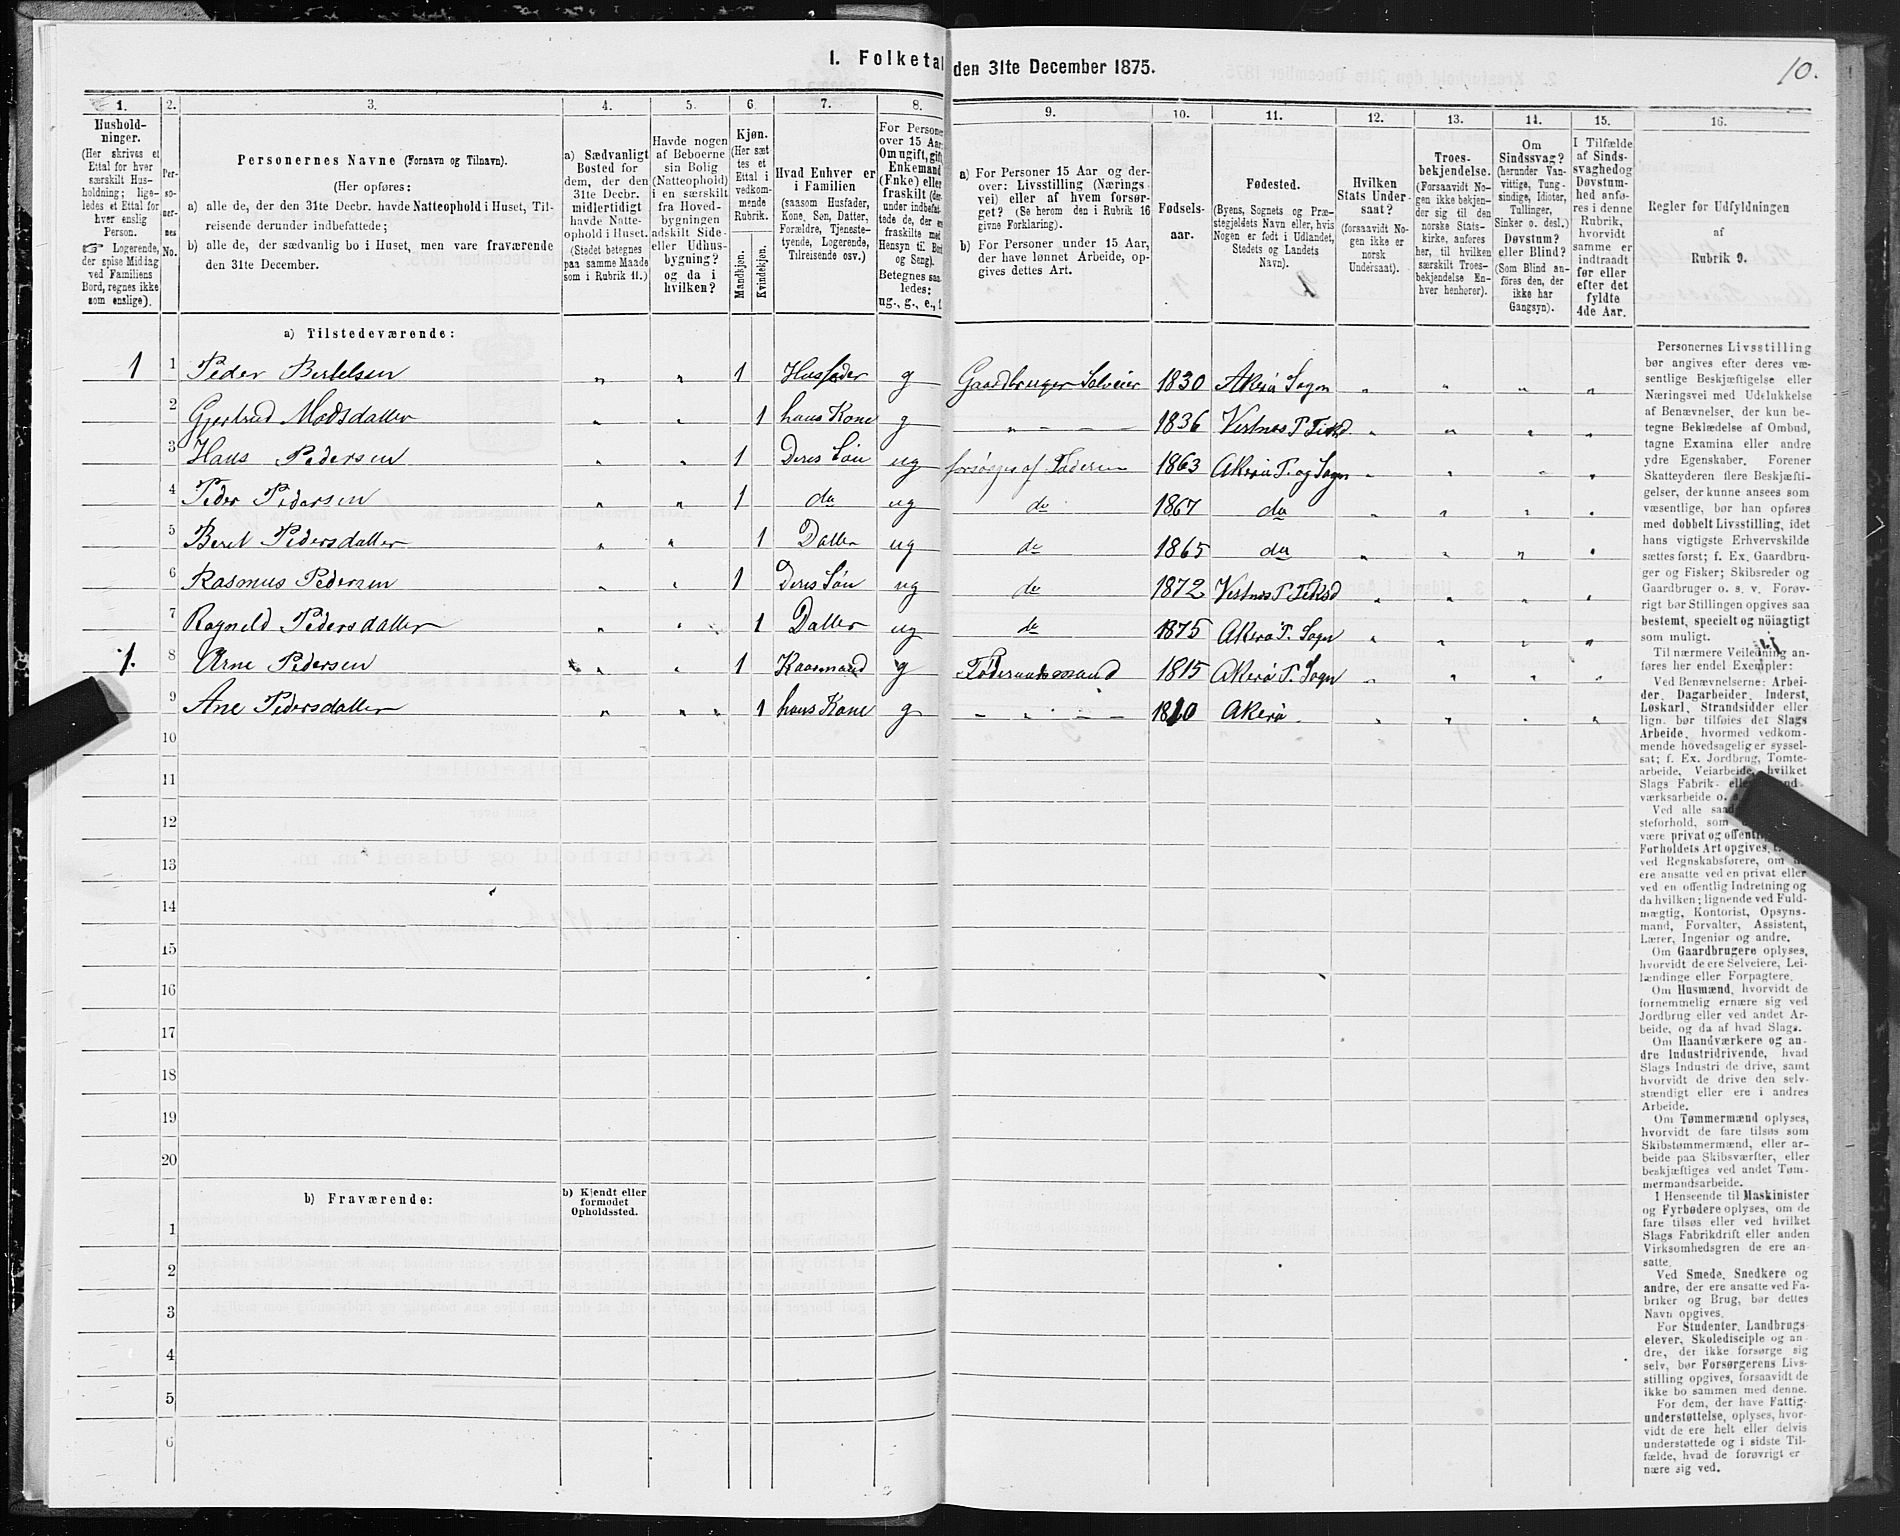 I. Folketal den 31te December 1875.
10.
1. 2. 3. 4. 5. 6. 7. 8. 9. 10. 11. 12. 13. 14. 15. 16.
Hushold-
ninger.
(Her skrives et
Ettal for hver
særskilt Hus-
holdning; lige-
ledes et Ettal for
hver enslig
Person.
☞ Logerende,
der spise Middag
ved Familiens
Bord, regnes ikke
som enslige).
Per-
so-
ner-
nes
No.
Personernes Navne (Fornavn og Tilnavn).
(Her opføres:
a) alle de, der den 31te Decbr. havde Natteophold i Huset, Til-
reisende derunder indbefattede;
b) alle de, der sædvanlig bo i Huset, men vare fraværende
den 31te December.
a) Sædvanligt
Bosted for
dem, der den
31te Decbr.
midlertidigt
havde Natte-
ophold i Huset.
(Stedet betegnes
paa samme Maade
som i Rubrik 11.)
Havde nogen
af Beboerne
sin Bolig
(Natteophold)
i en særskilt
fra Hoved-
bygningen
adskilt Side-
eller Udhus-
bygning?
og da i
hvilken?
Kjøn.
(Her sæt
tes et
Ettal i
vedkom-
mende
Rubrik.
Mandkjøn.
Kvindekjøn.
Hvad Enhver er
i Familien
(saasom Husfader,
Kone, Søn, Datter,
Forældre, Tjeneste-
tyende, Logerende,
Tilreisende osv.)
For Personer
over 15 Aar:
Om ugift, gift,
Enkemand
(Enke) eller
fraskilt (der-
under indbefat-
tede de, der ere
fraskilte med
Hensyn til Bord
og Seng).
Betegnes saa-
ledes:
ug., g., e., f.
a) For Personer 15 Aar og der-
over: Livsstilling (Nærings-
vei) eller af hvem forsør-
get? (Se herom den i Rubrik 16
givne Forklaring).
b) For Personer under 15 Aar,
der have lønnet Arbeide, op-
gives dettes Art.
Fødsels-
aar.
Fødested.
(Byens, Sognets og Præ-
stegjeldets Navn eller, hvis
Nogen er født i Udlandet,
Stedets og Landets
Navn).
Hvilken
Stats Under-
saat?
(forsaavidt No-
gen ikke er
norsk
Undersaat).
Troes-
bekjendelse.
(Forsaavidt No-
gen ikke bekjen-
der sig til den
norske Stats-
kirke, anføres
her, til hvilken
særskilt Troes-
bekjendelse En-
hver henhører).
Om
Sindssvag?
(herunder Van-
vittige, Tung-
sindige, Idioter,
Tullinger,
Sinker o. desl.)
Døvstum?
eller Blind?
(Som Blind an-
føres den, der
ikke har
Gangsyn).
I Tilfælde
af Sinds-
svaghed og
Døvstum-
hed anfø-
res i denne
Rubrik,
hvorvidt
samme er
indtraadt
før eller
efter det
fyldte
4de Aar.
Regler for Udfyldningen
af
Rubrik 9.
a) Tilstedeværende:
1 1 Peder Bertelsen „ „ 1 Husfader g Gaardbruger Selveier 1830 Akerø Sogn „ „ „ „
2 Gjertrud Madsdatter „ „ 1 hans Kone g „ — — — 1836 Vestnes P „ „ „ „
3 Hans Pedersen „ „ 1 Deres Søn ug forsørges af Faderen 1863 Akerø P. og Sogn „ „ „ „
4 Peder Pedersen „ „ 1 do ug do 1867 do „ „ „ „
5 Beret Pedersdatter „ „ 1 Datter ug do 1865 do „ „ „ „
6 Rasmus Pedersen „ „ 1 Deres Søn ug do 1872 Vestnes P „ „ „ „
7 Ragnild Pedersdatter „ „ 1 Datter ug do 1875 Akerø P. Sogn „ „ „ „
1. 8 Arne Pedersen „ „ 1 Kaarmand g Føderaadsmand 1815 Akerø P. Sogn „ „ „ „
9 Ane Pedersdatter „ „ „ 1 hans Kone g — „ — — 1810 Akerø „ „ „ „
10
11
12
13
14
15
16
17
18
19
20
b) Fraværende:
b) Kjendt eller
formodet
Opholdssted.
1
2
3
4
5
6
Personernes Livsstilling
bør angives efter deres væ-
sentlige Beskjæftigelse eller
Næringsvei med Udelukkelse
af Benævnelser, der kun be-
tegne Beklædelse af Ombud,
tagne Examina eller andre
ydre Egenskaber. Forener
Skatteyderen flere Beskjæfti-
gelser, der kunne ansees som
væsentlige, bør han opføres
med dobbelt Livsstilling, idet
hans vigtigste Erhvervskilde
sættes først; f. Ex. Gaardbru-
ger og Fisker; Skibsreder og
Gaardbruger o. s. v. Forøv-
rigt bør Stillingen opgives saa
bestemt, specielt og nøiagtigt
som muligt.
Til nærmere Veiledning an-
føres her endel Exempler:
Ved Benævnelserne: Arbei-
der, Dagarbeider, Inderst,
Løskarl, Strandsidder eller
lign. bør tilføies det Slags
Arbeide, hvormed vedkom-
mende hovedsagelig er syssel-
sat; f. Ex. Jordbrug, Tomte-
arbeide, Veiarbeide, hvilket
Slags Fabrik-
værksarbeide o.
Ved alle
steforhold, som
være privat og
Forholdets Art opgives,
ved Regnskabsførere, om
ere ansatte ved en privat eller
ved en offentlig Indretning og
da hvilken; lignende ved Fuld-
mægtig, Kontorist, Opsyns-
mand, Forvalter, Assistent,
Lærer, Ingeniør og andre.
Om Gaardbrugere oplyses,
hvorvidt de ere Selveiere, Lei-
lændinge eller Forpagtere.
Om Husmænd, hvorvidt de
fornemmelig ernære sig ved
Jordbrug eller ved andet Ar-
beide, og da af hvad Slags.
Om Haandværkere og an-
dre Industridrivende, hvad
Slags Industri de drive, samt
hvorvidt de drive den selv-
stændigt eller ere i andres
Arbeide.
Om Tømmermænd oplyses,
hvorvidt de fare tilsøs som
Skibstømmermænd, eller ar-
beide paa Skibsværfter, eller
beskjæftiges ved andet Tøm-
mermandsarbeide.
I Henseende til Maskinister
og Fyrbødere oplyses, om de
fare tilsøs eller ved hvilket
Slags Fabrikdrift eller anden
Virksomhedsgren de ere an-
satte.
Ved Smede, Snedkere og
andre, der ere ansatte ved Fa-
briker og Brug, bør dettes
Navn opgives.
For Studenter, Landbrugs-
elever, Skoledisciple og an-
dre, der ikke forsørge sig
selv, bør Forsørgerens Livs-
stilling opgives, forsaavidt de
ikke bo sammen med denne.
For dem, der have Fattig-
understøttelse, oplyses, hvor-
vidt de ere helt eller delvis
understøttede og i sidste Til-
fælde, hvad de forøvrigt er-
nære sig ved.